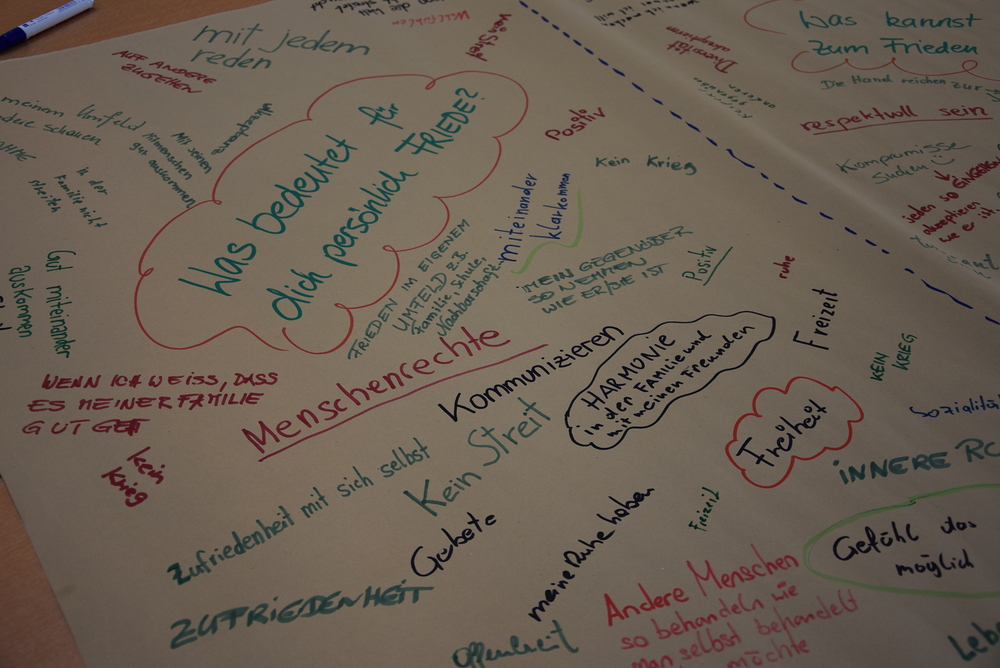 mit jedem
reden
AUF ANDERE
ZUGEHEN
Akzeptanz
meinem Umfeld
schauen
Mit seinen
Mitmenschen
gut auskommen
In der
Familie nicht
streiten
Gut miteinander
auskommen
Was bedeutet für
dich persönlich FRIEDE?
kein Streit
Positiv
Kein Krieg
miteinander
klarkommen
FRIEDEN IM EIGENEM
UMFELD Z.B.
Familie, Schule,
Nachbarschaft...
MEIN GEGENÜBER
SO NEHMEN
WIE ER/DIE IST
Positiv
ruhe
Freizeit
WENN ICH WEISS, DASS
ES MEINER FAMILIE
GUT GET
Menschenrechte
Kommunizieren
HARMONIE
in der FAMILIE und
mit meinen Freunden
KEIN
KRIEG
Freiheit
sozialität
kein
Krieg
Zufriedenheit mit sich selbst
Kein Streit
INNERE
Gebete
meine Ruhe haben
Freizeit
Gefühl das
möglich
ZUFRIEDENHEIT
Offenheit
Andere Menschen
so behandeln wie
man selbst behandelt
möchte
Was kannst
zum Frieden
Die Hand reichen zur
respektvoll sein
Kompromisse
suchen
jeden so
akzeptieren
wie er
ist
Diversität
akzeptieren